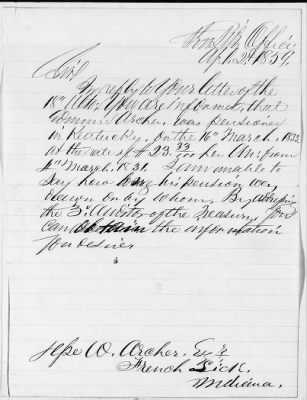 Apl. 2d 1859.
Sir
In reply to your letter of the
18th Ulto. You are informed, that
Archer, was pensioner
in Kentucky, on the 16th March, 1833,
at the rate of $23.33 per Ann. from
4th March, 1831. I am unable to
say how his pension was
drawn or by whom. By
the 3d Auditor of the Treasury, you
can obtain the information
you desire
Jesse W. Archer. Esqr
French Lick.
Indiana.